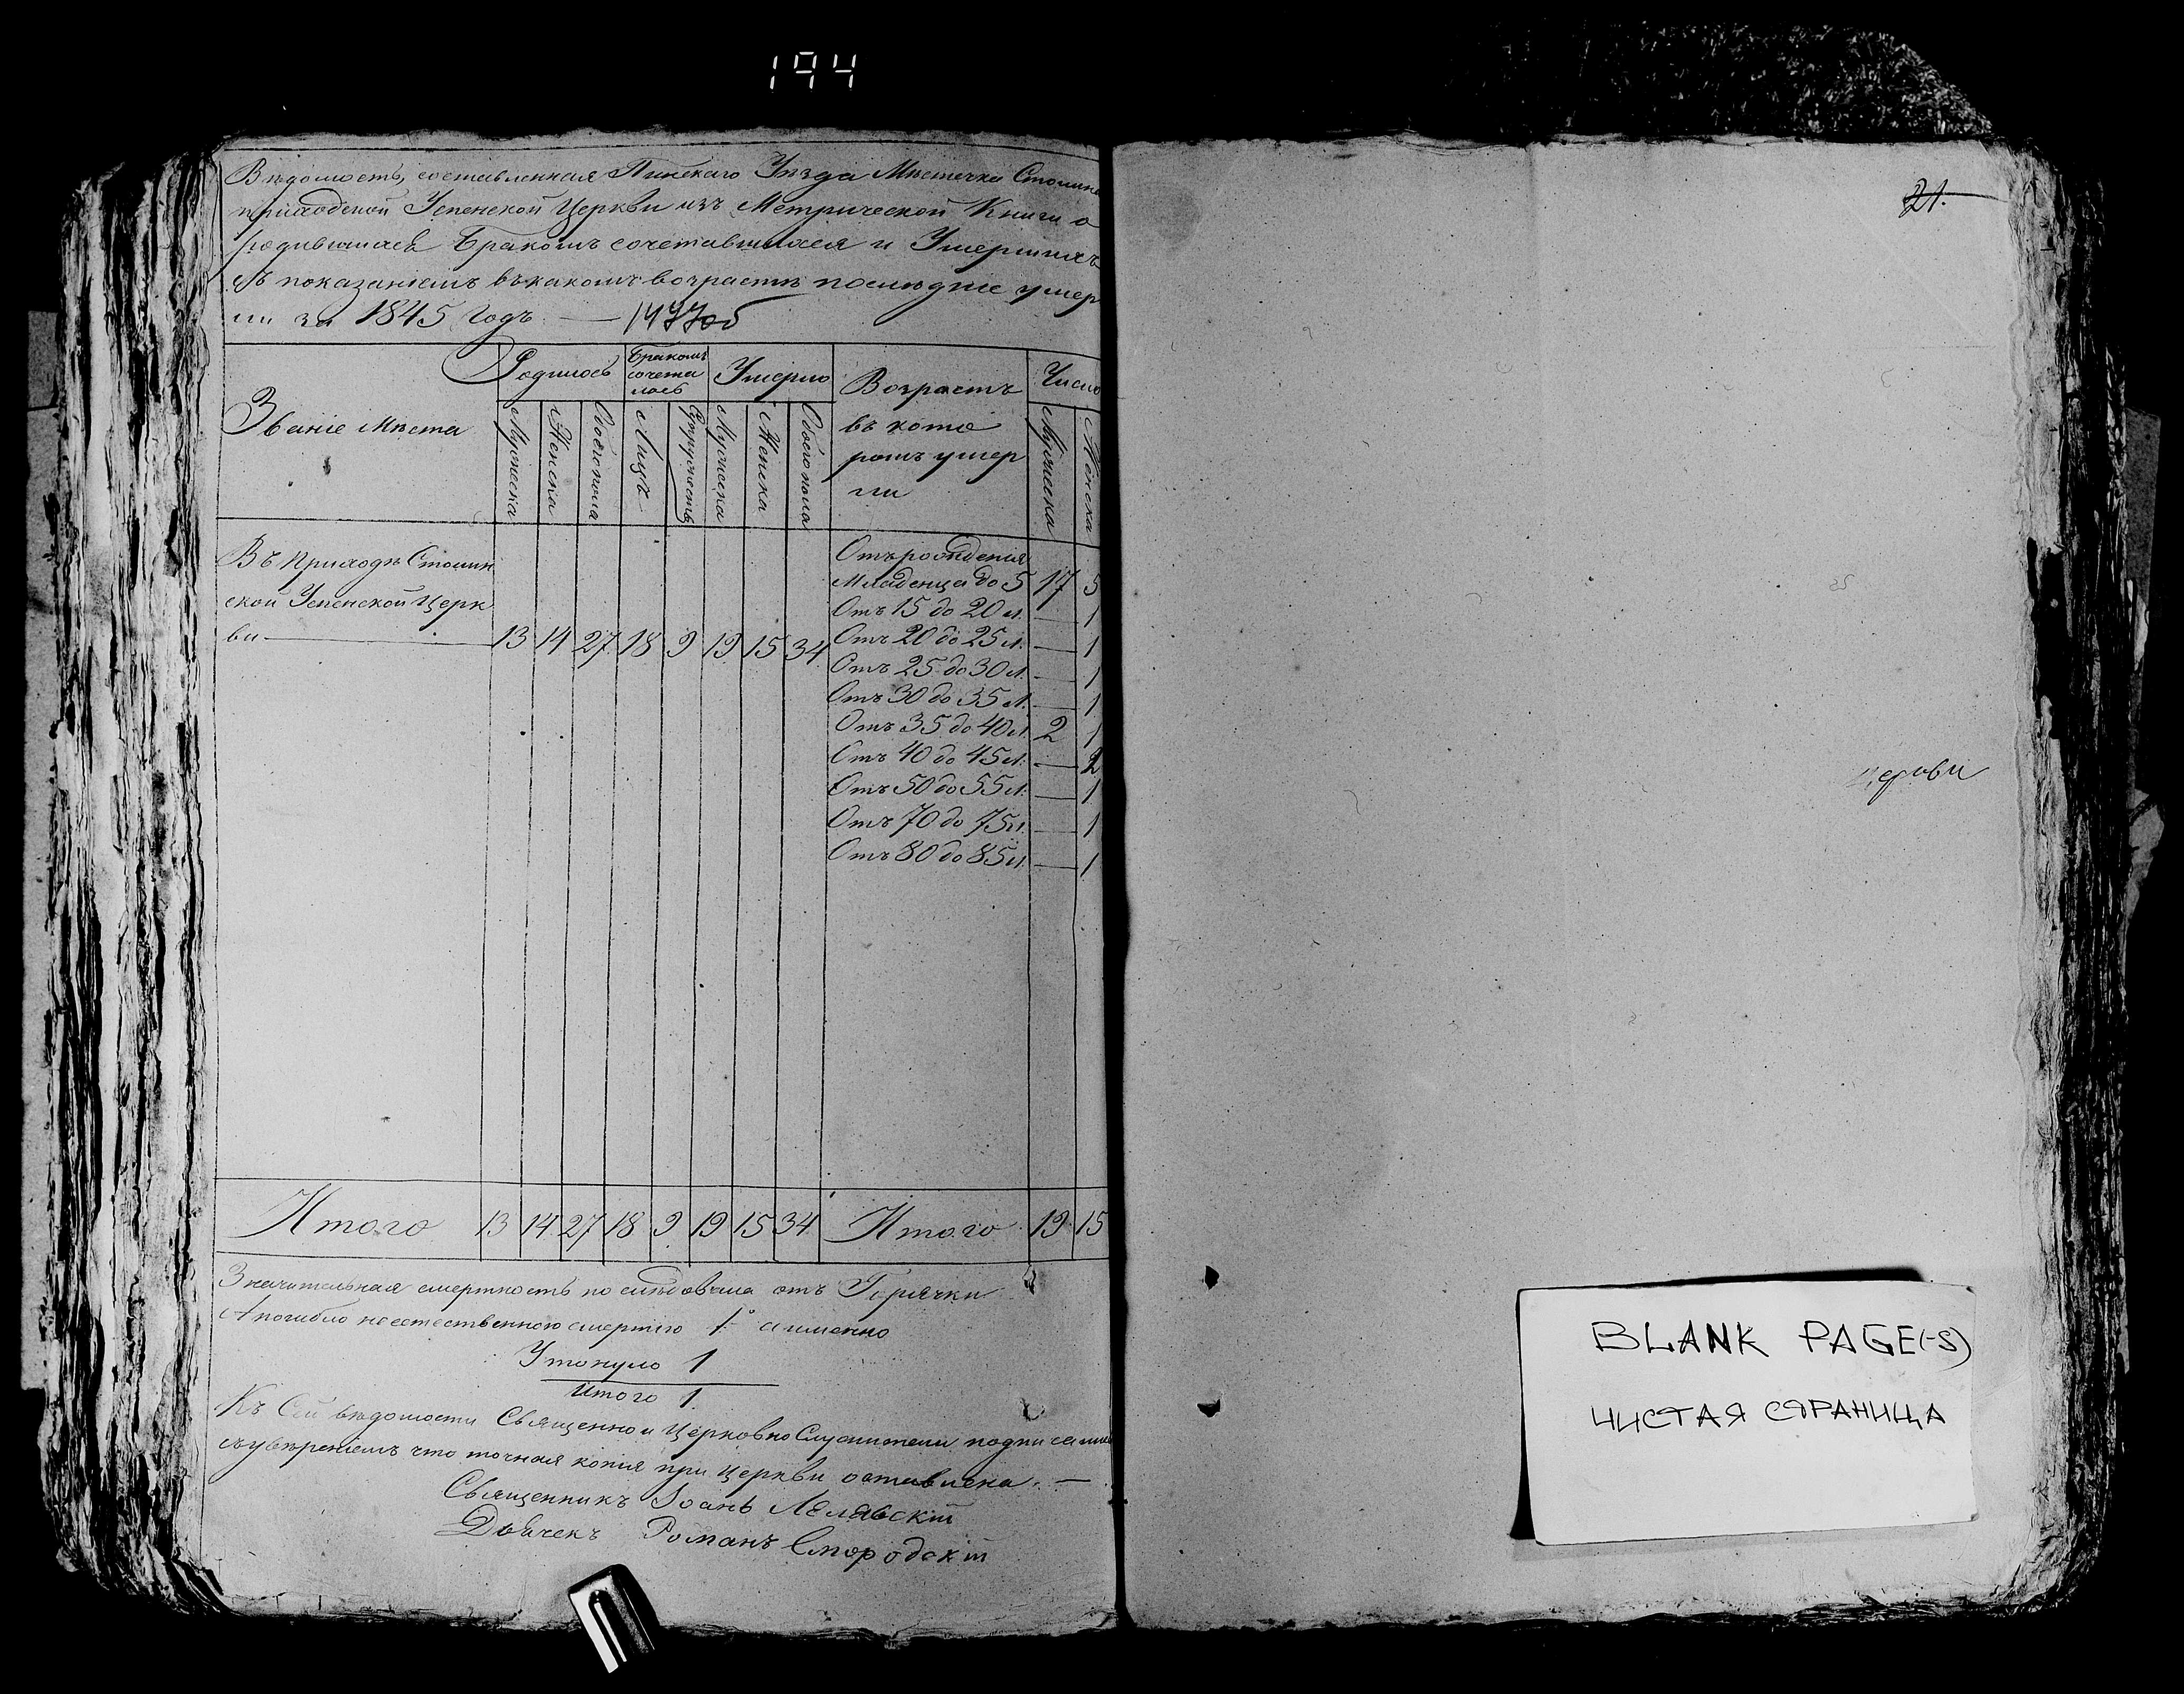 194
Вѣдомость, составленная Пинскаго Уѣзда Мѣстечка Столина
приходской Успенской Церкви изъ Метрической Книги о
родившихся Бракомъ сочетавшихся и Умершихъ
Съ показаніемъ въ какомъ возрастѣ послѣдніе умер
ли за 1845 годъ — 1477об
Званіе Мѣста
Родилось
Бракомъ
сочета
лось
Умерло
Возрастъ
въ кото
ромъ умер
ли
Число
Мужеска
Женска
Обоего пола
Лицъ
Супружествъ
Мужеска
Женска
Обоего пола
Мужеска
Женска
Въ Приходѣ Столин
ской Успенской Церк
ви — 13 14 27 18 9 19 15 34
Отъ рожденія
Младенца до 5 17 5
Отъ 15 до 20 л. — 1
Отъ 20 до 25 л. — 1
Отъ 25 до 30 л. — 1
Отъ 30 до 35 л. — 1
Отъ 35 до 40 л. 2 1
Отъ 40 до 45 л. — 2
Отъ 50 до 55 л. — 1
Отъ 70 до 75 л. — 1
Отъ 80 до 85 л. — 1
Итого 13 14 27 18 9 19 15 34 Итого 19 15
Значительная смертность по слѣдовала отъ Горячки
А погибло неестественною смертію 1 а именно
Утонуло 1
Итого 1.
Къ Сей вѣдомости Священно и Церковно Служители подписались
съ увѣреніемъ что точная копія при Церкви оставлена. —
Священникъ Іоанъ Лелявскій
Дьячекъ Романъ Смородскій
21.
Церкви
BLANK PAGE(-S)
ЧИСТАЯ СТРАНИЦА